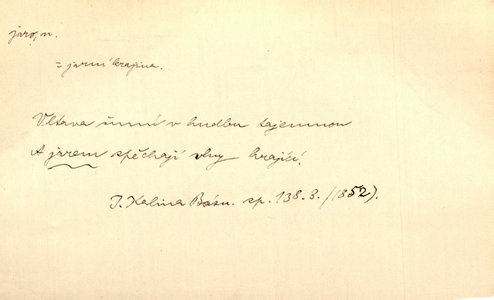 jaro, n.
= jarní krajina.
Vltava šumí v hudbu tajemnou
A jarem spěchají vlny hrající.
J. Kalina Básn. sp. 138. 3. /1852).